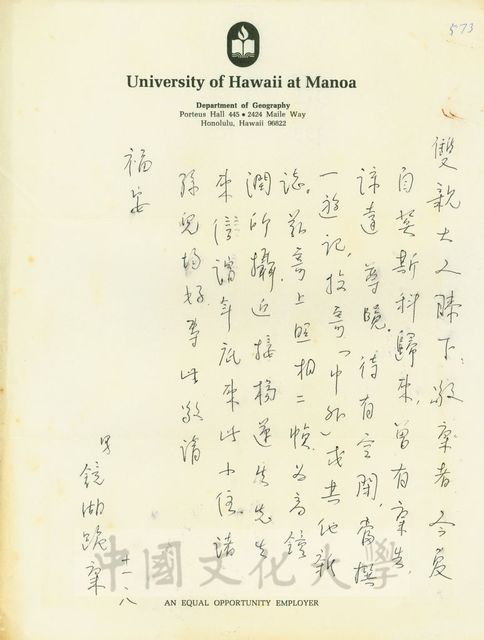 573
University of Hawaii at Manoa
Department of Geography
Porteus Hall 445 • 2424 Maile Way
Honolulu, Hawaii 96822
雙親大人膝下：敬稟者今夏
自莫斯科歸來，曾有稟告，
諒達尊覽。待有空閑，當撰
一遊記，投寄「中外」或其他新
誌。茲寄上照相二幀，為高鐘
潤所攝。近接楊蓮生先生
來信謂年底來此小住。諸
孫兒均好專此敬請
福安
男
鏡湖跪稟
十一、八
中國文化大學
AN EQUAL OPPORTUNITY EMPLOYER